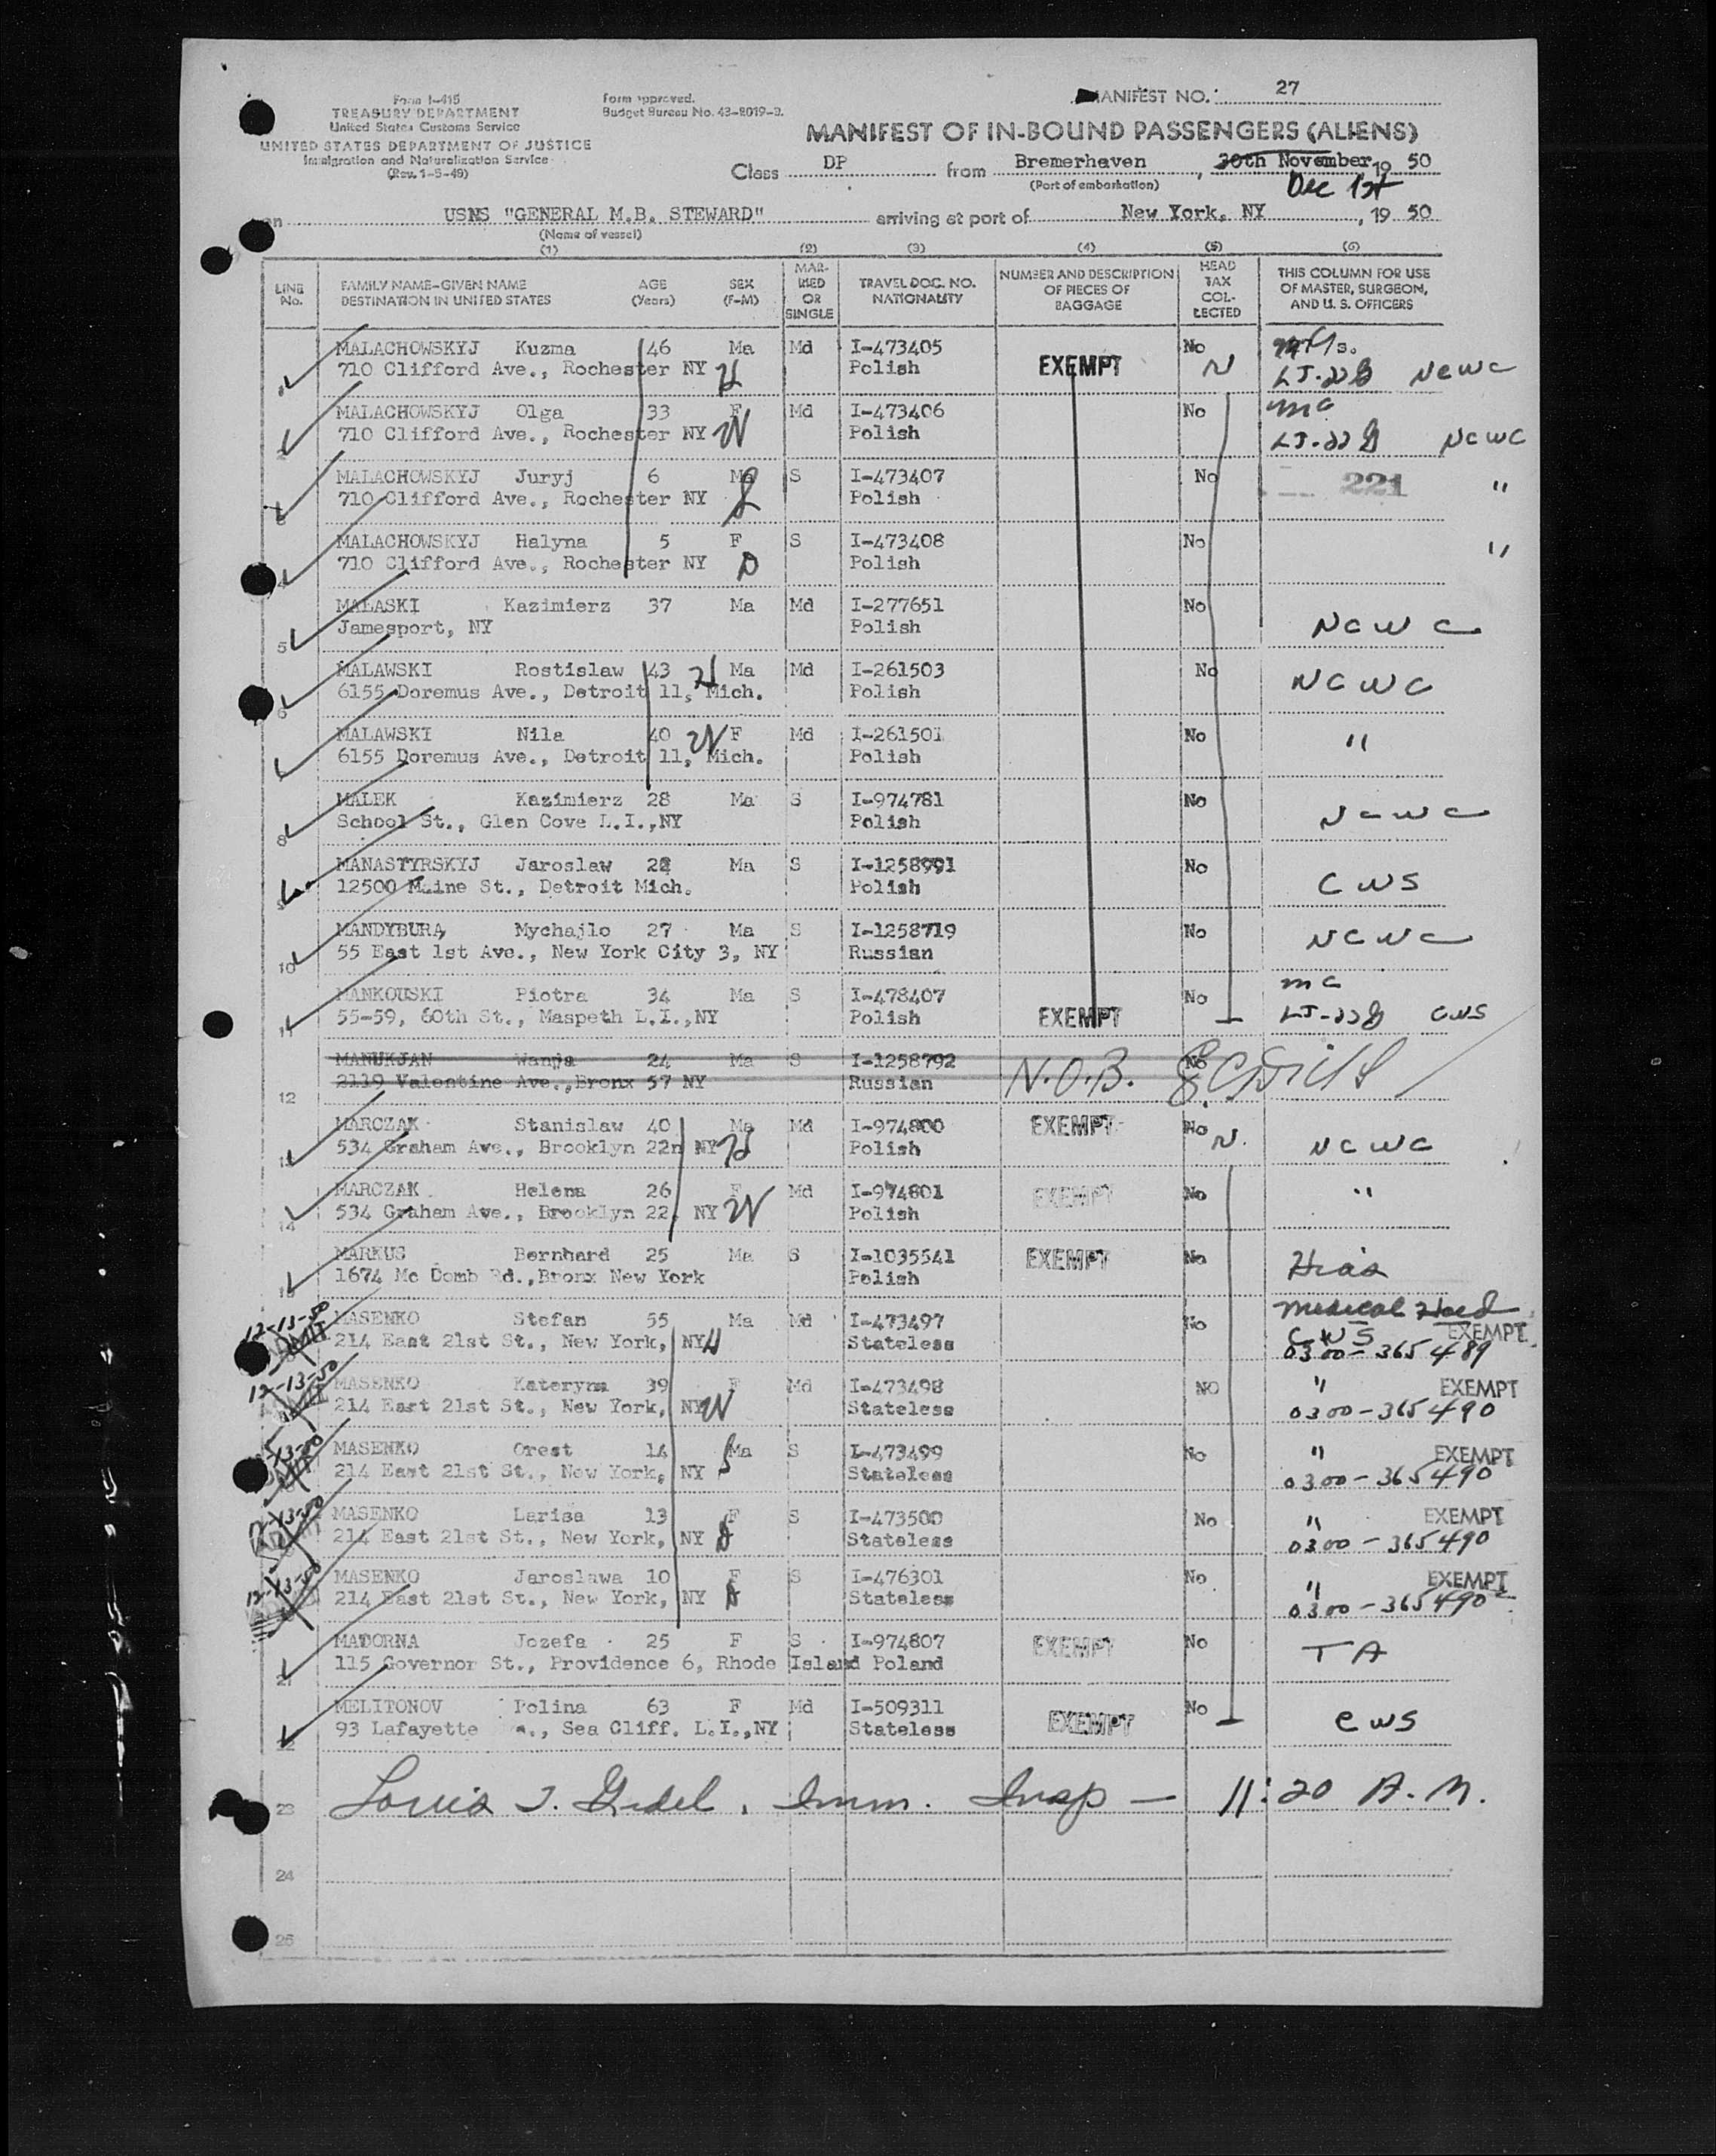 Form I-415
TREASURY DEPARTMENT
United States Customs Service
UNITED STATES DEPARTMENT OF JUSTICE
Immigration and Naturalization Service
(Rev. 1-5-49)
Form approved.
Budget Bureau No. 43-R019-2.
MANIFEST NO. 27
MANIFEST OF IN-BOUND PASSENGERS (ALIENS)
Class DP from Bremerhaven, 30th November, 19 50
(Port of embarkation) Dec 1st
on USNS "GENERAL M.B. STEWARD" arriving at port of New York, NY, 19 50
(Name of vessel)
(1) (2) (3) (4) (5) (6)
LINE No. FAMILY NAME-GIVEN NAME DESTINATION IN UNITED STATES AGE (Years) SEX (F-M) MARRIED OR SINGLE TRAVEL DOC. NO. NATIONALITY NUMBER AND DESCRIPTION OF PIECES OF BAGGAGE HEAD TAX COLLECTED THIS COLUMN FOR USE OF MASTER, SURGEON, AND U. S. OFFICERS
MALACHOWSKYJ Kuzma 46 Ma Md I-473405 No
710 Clifford Ave., Rochester NY H Polish EXEMPT N NCWC
MALACHOWSKYJ Olga 33 F Md I-473406 No mc
2 710 Clifford Ave., Rochester NY W Polish NCWC
MALACHOWSKYJ Juryj 6 Ma S I-473407 No 221 "
710 Clifford Ave., Rochester NY S Polish
MALACHOWSKYJ Halyna 5 F S I-473408 No "
4 710 Clifford Ave., Rochester NY D Polish
MALASKI Kazimierz 37 Ma Md I-277651 No
5 Jamesport, NY Polish NCWC
MALAWSKI Rostislaw 43 H Ma Md I-261503 No
6 6155 Doremus Ave., Detroit 11, Mich. Polish NCWC
MALAWSKI Nila 40 W F Md I-261501 No "
6155 Doremus Ave., Detroit 11, Mich. Polish
MALEK Kazimierz 28 Ma S I-974781 No
8 School St., Glen Cove L.I.,NY Polish NCWC
MANASTYRSKYJ Jaroslaw 28 Ma S I-1258991 No
9 12500 Maine St., Detroit Mich. Polish CWS
MANDYBURA Mychajlo 27 Ma S I-1258719 No
10 55 East 1st Ave., New York City 3, NY Russian NCWC
MANKOUSKI Piotra 34 Ma S I-478407 No mc
11 55-59, 60th St., Maspeth L.I.,NY Polish EXEMPT CWS
MANUKJAN Wanja 24 Ma S I-1258792 No
12 2119 Valentine Ave.,Bronx 57 NY Russian N.O.B.
MARCZAK Stanislaw 40 Ma Md I-974800 EXEMPT No
13 534 Graham Ave., Brooklyn 22n NY H Polish N. NCWC
MARCZAK Helena 26 F Md I-974801 EXEMPT No "
14 534 Graham Ave., Brooklyn 22, NY W Polish
MARKUS Bernhard 25 Ma S I-1035541 EXEMPT No
15 1674 Mc Domb Rd.,Bronx New York Polish Hias
12-13-50 MASENKO Stefan 55 Ma Md I-473497 No Medical Hold
ADMIT 214 East 21st St., New York, NY H Stateless CWS EXEMPT
0300-365489
12-13-50 MASENKO Kateryna 39 F Md I-473498 NO " EXEMPT
214 East 21st St., New York, NY W Stateless 0300-365490
MASENKO Orest 14 S Ma S I-473499 No " EXEMPT
214 East 21st St., New York, NY Stateless 0300-365490
MASENKO Larisa 13 F S I-473500 No " EXEMPT
214 East 21st St., New York, NY D Stateless 0300-365490
12-13-50 MASENKO Jaroslawa 10 F S I-476301 No " EXEMPT
214 East 21st St., New York, NY D Stateless 0300-365490
MATORNA Jozefa 25 F S I-974807 EXEMPT No
21 115 Governor St., Providence 6, Rhode Island Poland TA
MELITONOV Polina 63 F Md I-509311 No
22 93 Lafayette, Sea Cliff. L.I.,NY Stateless EXEMPT CWS
23 Louis J. Imm. Insp — 11:20 A.M.
24
25